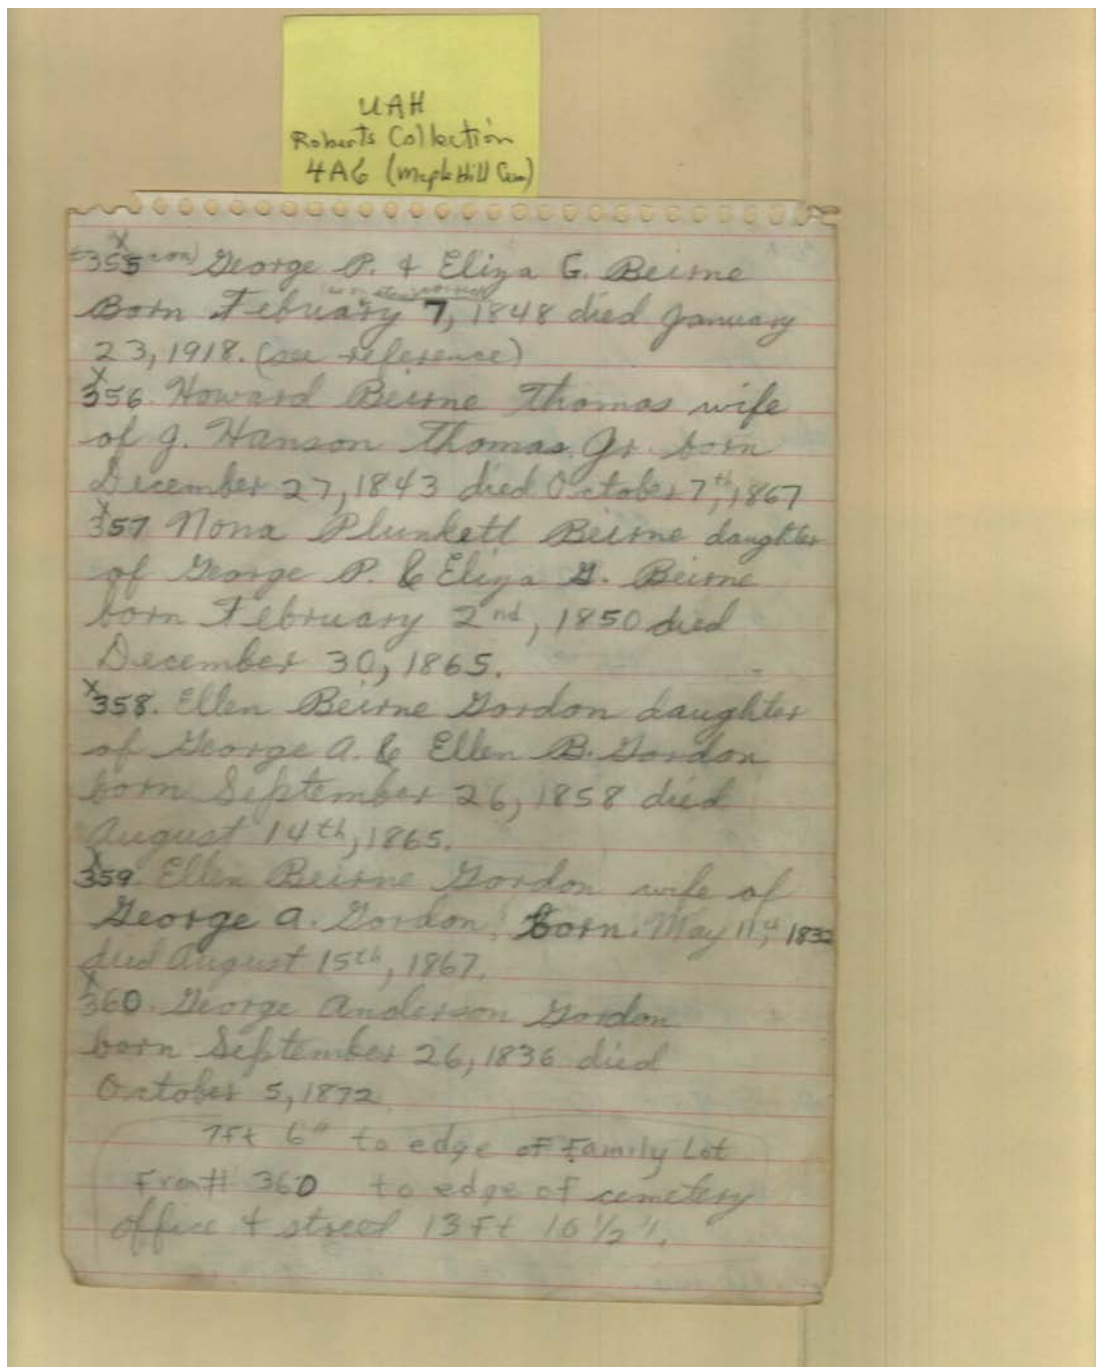 UAH
Roberts Collection
4A6 (Maple Hill Cem)
355 con) George P. & Eliza G. Beirne
Born February 7, 1848 died January
23, 1918. (see reference)
X
356. Howard Beirne Thomas wife
of J. Hanson Thomas Jr. born
December 27, 1843 died October 7th, 1867
X
357 Nona Plunkett Beirne daughter
of George P. & Eliza G. Beirne
born February 2nd, 1850 died
December 30, 1865.
X
358. Ellen Beirne Gordon daughter
of George A. & Ellen B. Gordon
born September 26, 1858 died
August 14th, 1865.
X
359. Ellen Beirne Gordon wife of
George A. Gordon, born May 11th, 1832
died August 15th, 1867.
X
360. George Anderson Gordon
born September 26, 1836 died
October 5, 1872
7ft 6" to edge of Family Lot
From # 360 to edge of cemetery
office & street 13 Ft 16 1/2 ".